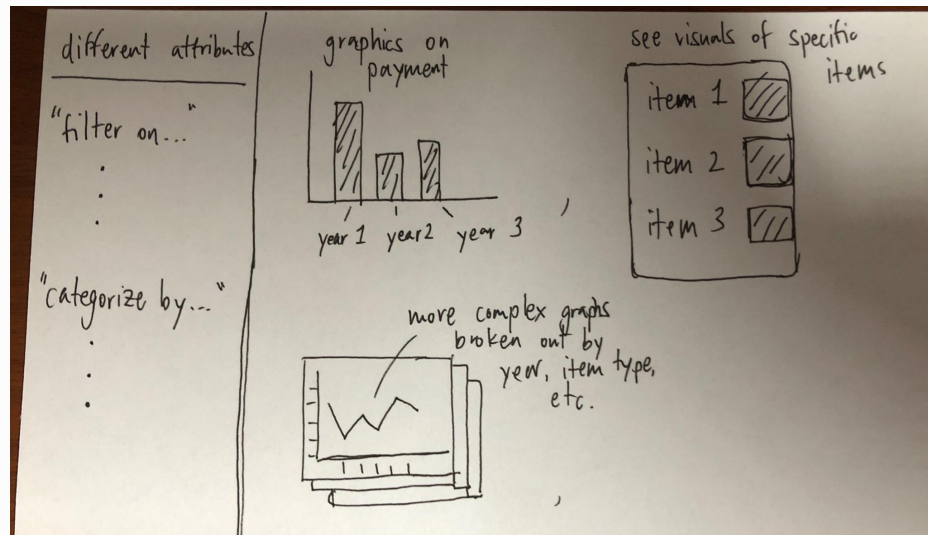 different attributes
"filter on..."
"categorize by..."
graphics on
payment
year 1 year 2 year 3
see visuals of specific
items
item 1
item 2
item 3
more complex graphs
broken out by
year, item type,
etc.